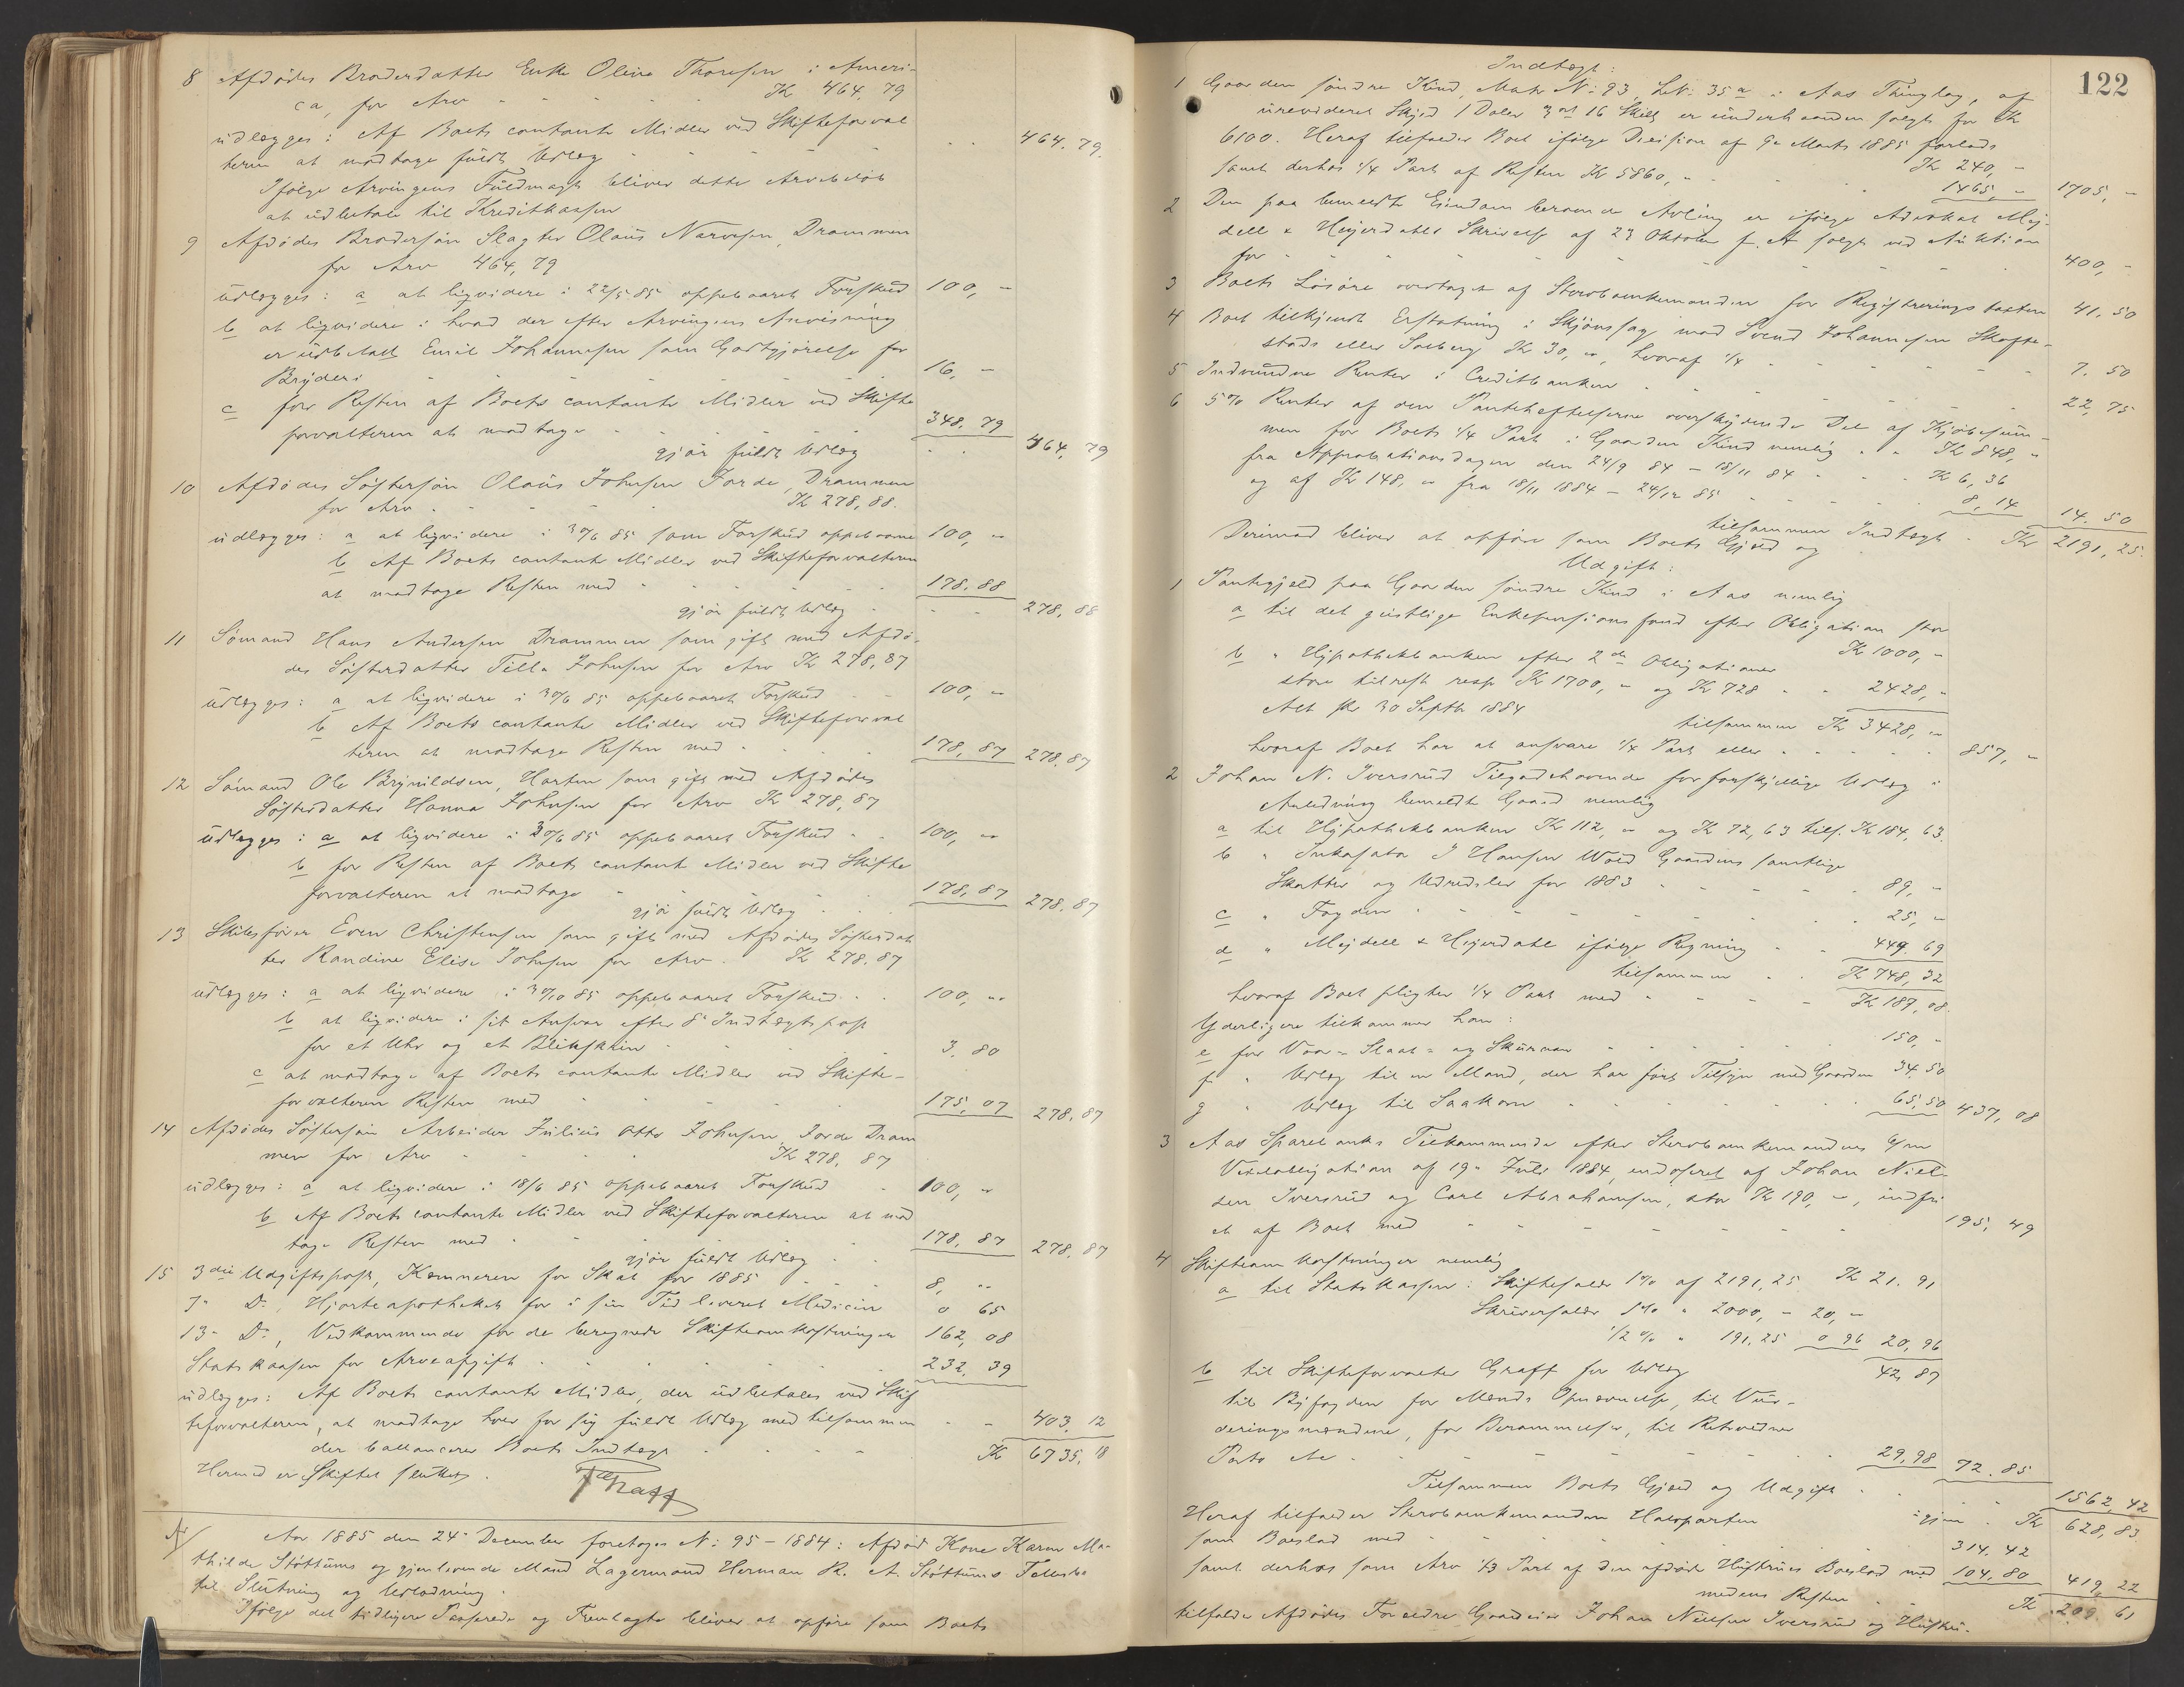 8 Afdødes Broderdatter Enke Oline Thoresen i Ameri-
ca, for Arv Kr 464,79
udlægges: Af Boets contante Midler ved Skifteforval
teren at modtage fuldt Udlæg 464,79.
Ifølge Arvingens Fuldmagt bliver dette Arvebeløb
at udbetale til Kreditkassen
9 Afdødes Brodersøn Slagter Olaus Narvesen, Drammen
for Arv 464,79
udlægges: a at liqvidere i 22/5 85 oppebaaret Forskud 100, "
b at liqvidere i hvad der efter Arvingens Anvisning
er udbetalt Emil Johannesen som Godtgjørelse for
Bryderi 16, "
c for Resten af Boets contante Midler ved Skifte
forvalteren at modtage 348,79
gjør fuldt Udlæg 464,79
10 Afdødes Søstersøn Olaus Johnsen Jorde, Drammen
for Arv Kr 278,88.
udlægges: a at liqvidere i 30/6 85 som Forskud oppebaaret 100, "
b Af Boets contante Midler ved Skifteforvalteren
at modtage Resten med 178,88
gjør fuldt Udlæg 278,88
11 Sømand Hans Andersen Drammen som gift med Afdø-
des Søsterdatter Tilla Johnsen for Arv Kr 278,87
udlægges: a at liqvidere i 30/6 85 oppebaaret Forskud 100, "
b Af Boets contante Midler ved Skifteforval
teren at modtage Resten med 178,87 278,87
12 Sømand Ole Brynildsen, Horten som gift med Afdødes
Søsterdatter Hanna Johnsen for Arv Kr 278,87
udlægges: a at liqvidere i 30/6 85 oppebaaret Forskud 100, "
b for Resten af Boets contante Midler ved Skifte
forvalteren at modtage 178,87 278,87
gjør fuldt Udlæg
13 Skibsfører Even Christensen som gift med Afdødes Søsterdat
ter Randine Elise Johnsen for Arv Kr 278,87
udlægges: a at liqvidere i 30/10 85 oppebaaret Forskud 100, "
b at liqvidere i sit Ansvar efter 8de Indtægtspost
for et Uhr og et Blikskrin 3,80
c at modtage af Boets contante Midler ved Skifte-
forvalteren Resten med 175,07 278,87
14 Afdødes Søstersøn Arbeider Julius Otto Johnsen, Jorde Dram
men for Arv Kr 278,87
udlægges: a at liqvidere i 18/6 85 oppebaaret Forskud 100, "
b Af Boets contante Midler ved Skifteforvalteren at mod
tage Resten med 178,87 278,87
gjør fuldt Udlæg
15 3die Udgiftspost, Kæmneren for Skat for 1885 8, "
7de Do, Hjorteapotheket for i sin Tid leveret Medicin 0 65
13de Do, Vedkommende for de beregnede Skifteomkostninger 162,08
Statskassen for Arveafgift 232,39
udlægges: Af Boets contante Midler, der udbetales ved Skif
teforvalteren, at modtage hver for sig fuldt Udlæg med tilsammen 403,12
der ballancerer Boets Indtægt Kr 6735,18
Hermed er Skiftet sluttet.
Graff
Aar 1885 den 24de December foretoges No: 95-1884: Afdød Kone Karen Ma-
thilde Støttums og gjenlevende Mand Lagermand Herman R. A. Støttums Fællesbo
til Slutning og Udlodning.
Ifølge det tidligere Passerede og Fremlagte bliver at opføre som Boets
122
Indtægt:
1 Gaarden søndre Kind, Matr No: 93, LNo: 35a i Aas Thinglag, af
urevideret Skyld 1 Daler 3 ort 16 Skill er underhaanden solgt for Kr
6100. Heraf tilfalder Boet ifølge Decision af 9de Marts 1885 forlods Kr 240, "
samt derhos 1/4 Part af Resten Kr 5860, " 1465, " 1705, "
2 Den paa bemeldte Eiendom beroende Avling er ifølge Advokat Mej-
dell & Heyerdahls Skrivelse af 23 Oktober f. A solgt ved Auktion
for 400, "
3 Boets Løsøre overtaget af Sterboenkemanden for Registreringstaxten 41,50
4 Boet tilkjendt Erstatning i Skjønssag mod Svend Johannesen Skofte-
stads eller Solberg Kr 30, ", hvoraf 1/4 7.50
5 Indvundne Renter i Creditbanken 22,75
6 5% Renter af den Pantehæftelserne overskydende Del af Kjøbesum-
men for Boets 1/4 Part i Gaarden Kind nemlig Kr 848, "
fra Approbationsdagen den 24/9 84 - 18/11 84 Kr 6,36
og af Kr 148, " fra 18/11 1884 - 24/12 85 8,14 14.50
tilsammen Indtægt Kr 2191,25.
Derimod bliver at opføre som Boets Gjæld og
Udgift:
1 Pantegjæld paa Gaarden søndre Kind i Aas nemlig
a til det geistlige Enkepensionsfond efter Obligation stor
Kr 1000, "
b " Hypothekbanken efter 2de Obligationer
store tilrest resp Kr 1700, " og Kr 728 2428, "
Alt pr 30 Septbr 1884
tilsammen Kr 3428, "
hvoraf Boet har at ansvare 1/4 Part eller 857, "
2 Johan N. Iversrud Tilgodehavende for forskjellige Udlæg i
Anledning bemeldte Gaard nemlig
a til Hypothekbanken Kr 112, " og Kr 72,63 tils. Kr 184,63.
b " Inkasator J Hansen Wold Gaardens samtlige
Skatter og Udredsler for 1883 89, "
c " Fogden 25, "
d " Mejdell & Heyerdahl ifølge Regning 449.69
tilsammen Kr 748,32
hvoraf Boet pligter 1/4 Part med Kr 187,08.
Yderligere tilkommer ham:
e for Vaar- Slaat- og Skuronn 150, "
f " Udlæg til en Mand, der har ført Tilsyn med Gaarden 34.50
g " Udlæg til Saakorn 65,50 437,08
3 Aas Sparebanks Tilkommende efter Sterboenkemandens 6/m
Vexelobligation af 19de Juli 1884, endosseret af Johan Niel-
sen Iversrud og Carl Abrahamsen, stor Kr 190, ", indfri
et af Boet med 195,49
4 Skifteomkostninger nemlig
a til Statskassen: Skiftesalær 1% af 2191,25 Kr 21.91
Skriversalær 1% " 2000, " 20, "
1/2 % " 191,25 0 96 20,96
42,87
b til Skifteforvalter Graff for Udlæg
til Byfogden for Mænds Opnævnelse, til Vur-
deringsmændene, for Berammelse, til Retsvidner
Porto etc 29,98 72.85
Tilsammen Boets Gjæld og Udgift 1562,42
igjen Kr 628,83
Heraf tilfalder Sterboenkemanden Halvparten
som Boeslod med 314.42
samt derhos som Arv 1/3 Part af den afdøde Hustrues Boeslod med 104,80 419,22
medens Resten Kr 209.61
tilfalder Afdødes Forældre Gaardeier Johan Nielsen Iversrud og Hustru.